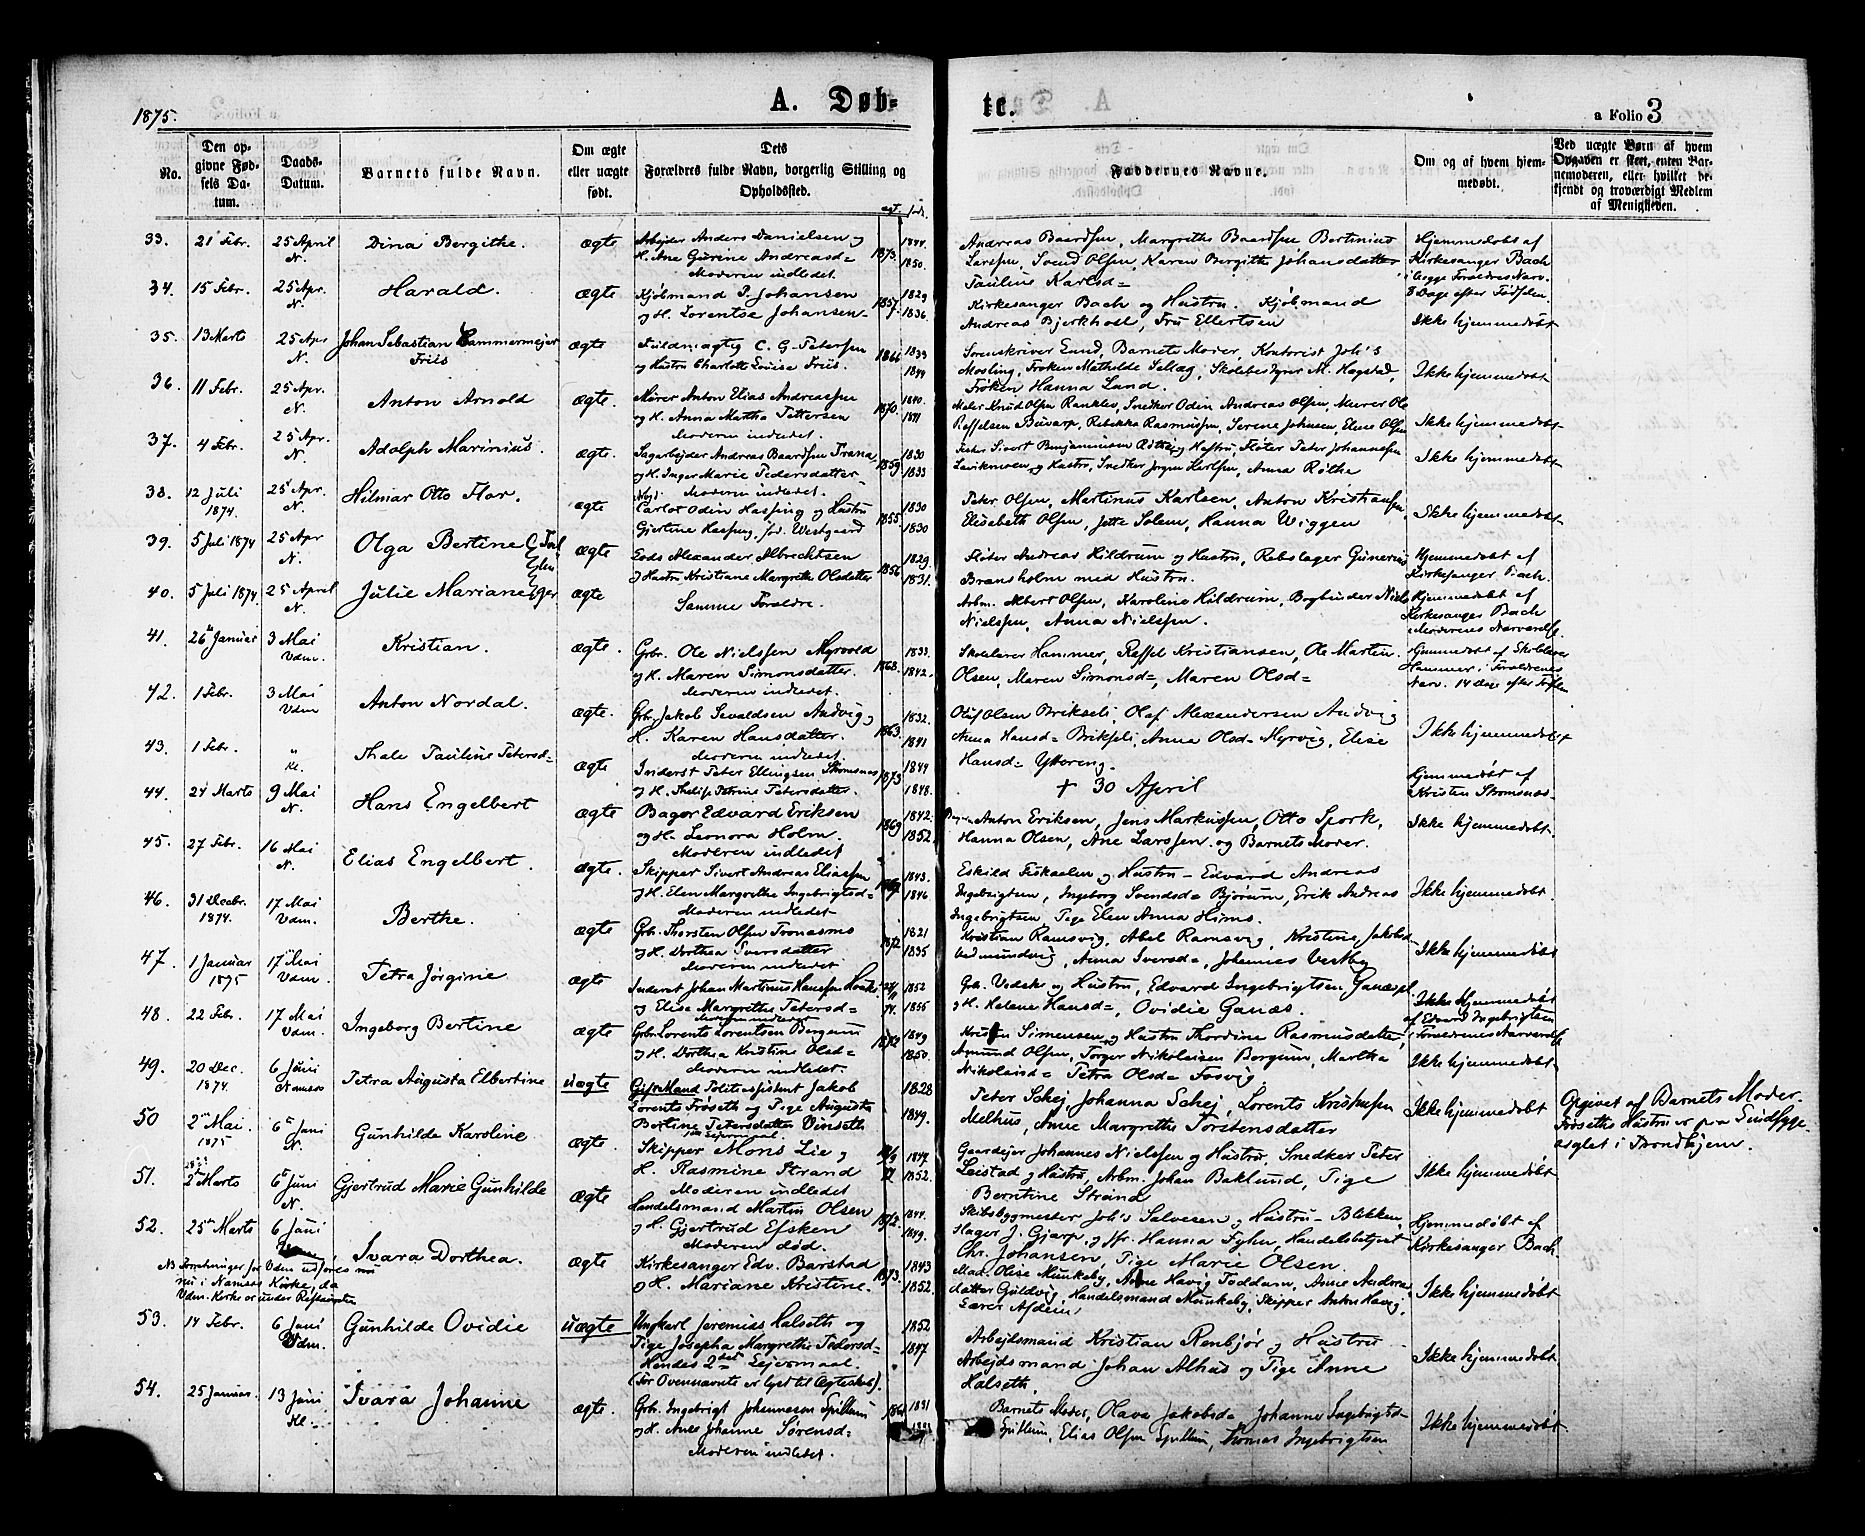 1875.
A. Døb=
te.
a Folio 3
No.
Den op-
givne Fød-
sels Da-
tum.
Daabs-
Datum.
Barnets fulde Navn.
Om ægte
eller uægte
født.
Dets
Forældres fulde Navn, borgerlig Stilling og
Opholdssted.
Faddernes Navne.
Om og af hvem hjem-
medøbt.
Ved uægte Børn af hvem
Opgaven er skeet, enten Bar-
nemoderen, eller hvilket be-
kjendt og troværdigt Medlem
af Menigheden.
33. 21 Febr. 25 April N. Dina Bergithe. ægte
Arbejder Anders Danielsen og
H. Ane Gurine Andreasd=
Moderen indledet.
1873. 1844. 1850.
Andreas Baardsen, Margrethe Baardsen, Bertinius
Larsen, Svend Olsen, Karen Bergithe Johansdatter
Pauline Karlsd=
Hjemmedøbt af
Kirkesanger Bach
i begge Forældres Narv.
8 Dage efter Fødselen.
34. 15 Febr. 25 Apr. N. Harald. ægte
Kjøbmand P. Johansen
og H. Lorentse Johansen
1857. 1829 1836.
Kirkesanger Bach og Hustru. Kjøbmand
Andreas Bjerkholt, Fru Ellertsen
Ikke hjemmedøbt
35. 13 Marts 25 Apr N. Johan Sebastian Cammermejer
Friis ægte
Fuldmægtig C. G. Petersen
og Hustru Charlotte Louise Friis.
1866 1833 1844
Sorenskriver Lund, Barnets Moder, Kontorist Joh's
Mosling, Frøken Mathilde Sellæg, Skolebestyrer M. Hagstad,
Frøken Hanna Lund.
Ikke hjemmedøbt
36. 11 Febr. 25 Apr. N. Anton Arnold ægte.
Murer Anton Elias Andreassen
og H. Anna Martha Pettersen
Moderen indledet.
1870. 1840. 1841
Maler Knud Olsen, Snedker Odin Andreas Olsen, Murer Ole
Rebekka Rasmussen, Serene Johnsen, Elene Olsen
Ikke hjemmedøbt
37. 4 Febr. 25 Apr. N. Adolph Marinius. ægte.
Sagarbejder Andreas Baardsen Trana
og H. Inger Marie Pedersdatter
Moderen indledet.
1859 1830 1833
Sivert Benjaminsen og Hustru, Fløter Peter Johannessen
og Hustru, Snedker Jørgen, Anna Røthe
Ikke hjemmedøbt
38. 12 Juli 1874. 25 Apr. N. Hilmar Otto Flor. ægte
Carlot Odin Hasfing og Hustru
Gjertine Hasfing, fød Westgaard
1855. 1830 1830
Peter Olsen, Martinus Karlsen, Anton Kristiansen,
Elisabeth Olsen, Jette Solem, Hanna Wiggen
Ikke hjemmedøbt
39. 5 Juli 1874 25 Apr N. Olga Bertine ægte
Lods Alexander Albrechtsen
og Hustru Kristiane Margrethe Olsdatter
1856 1829. 1831.
Fløter Andreas Hildrum og Hustru, Rebslager Gunerius
Bransholm med Hustru.
Hjemmedøbt af
Kirkesanger Bach.
40. 5 Juli 1874 25 April N. Julie Mariane ægte
Samme Forældre.
Arbm. Albert Olsen, Karoline Hildrum, Bogbinder Niels
Nielssen, Anna Nielssen.
Hjemmedøbt af
Kirkesanger Bach
41. 26 Januar 3 Mai Vdm. Kristian. ægte.
Grbr. Ole Nielssen Myrvold
og H. Maren Simonsdatter.
Moderen indledet.
1868. 1833. 1842.
Skolelærer Hammer, Kristiansen, Ole Martin
Olsen, Maren Simonsd=, Maren Olsd=
Hjemmedøbt af Skolelærer
Hammer i Forældrenes
Narv. 14 Dage efter Føds.
42. 1 Febr. 3 Mai Vdm Anton Nordal. ægte.
Grbr. Jakob Sevaldsen Andvig og
H. Karen Hansdatter.
Moderen indledet.
1863. 1832. 1841
Oluf Olsen, Olaf Alexandersen Andvig
Anna Hansd=, Anna Olsd= Myrvig, Elise
Hansd= Ytterøng.
Ikke hjemmedøbt
43. 1 Febr. " Kl. Thale Pauline Petersd= ægte
Inderst Peter Ellingsen Strømsnes
og H. Petrine Petersdatter.
1873 1849 1848.
+ 30 April
Hjemmedøbt af
Kristen Strømsnes
44. 24 Marts 9 Mai N. Hans Engelbert ægte
Bager Edvard Eriksen
og H. Leonora Holm.
Moderen indledet
1869 1842. 1852
Anton Eriksen, Jens Markussen, Otto Spørk,
Hanna Olsen, Ane Larssen og Barnets Moder.
Ikke hjemmedøbt.
45. 27 Febr. 16 Mai N. Elias Engelbert. ægte.
Skipper Sivert Andreas Eliassen
og H. Elen Margrethe Ingebrigtsd=
Moderen indledet
1843. 1846
Eskild Fiskaalen og Hustru - Edvard Andreas
Ingebrigtsen, Ingeborg Svendsd= Bjørum, Erik Andreas
Ingebrigtsen, Pige Elen Anna Hims.
Ikke hjemmedøbt.
46. 31 Decbr. 1874. 17 Mai Vdm. Berthe. ægte
Grbr. Thorsten Olsen Tronasmo
og H. Dorthea Iversdatter
Moderen indledet
1872 1821 1835
Kristian Ramsvig, Abel Ramsvig, Kristine Jakobsd
Anna Iversd=, Johannes Vestby
Ikke hjemmedøbt
47. 1 Januar 1875 17 Mai Vdm. Petra Jørgine ægte
Inderst Johan Martinus Hanssen
og Elise Margrethe Petersd=
Moderen indledet
1852 1855
Grb. og Hustru, Edvard Ingebrigtsen Ganæs
og H. Helene Hansd=, Ovidie Ganæs.
Ikke Hjemmedøbt
af Edvard Ingebrigtsen
i Forældrenes Narværelse
48. 22 Febr. 17 Mai Vdm. Ingeborg Bertine ægte
Grbr. Lorents Lorentsen Bergum
og H. Dorthea Kristine Olsd=
Moderen indledet.
1872 1849 1850.
Simensen og Hustru Thordine Rasmusdatter
Amund Olsen, Torger Nikolaisen Borgum, Martha
Nikolaisd= Petra Olsd= Fosvig
Ikke hjemmedøbt
49. 20 Dec. 1874. 6 Juni Namsos Petra Augusta Elbertine uægte
Gift Mand Politiassistent Jakob
Lorents Frøseth og Pige Augusta
Bertine Petersdatter Vinseth
1828 1849.
Peter Schej, Johanna Schej, Lorents Kristensen
Melhus, Anne Margrethe Torstensdatter
Ikke hjemmedøbt
Opgivet af Barnets Moder.
Frøseths Hustru er paa Sindssyge-
asylet i Trondhjem.
50 2 Mai 1875 6 Juni N. Gunhilde Karoline ægte.
Skipper Mons Lie og
H. Rasmine Strand
Moderen indledet
1847. 1852.
Gaardejer Johannes Nielssen og Hustru, Snedker Peter
Leistad og Hustru, Arbm. Johan Baklund, Pige
Berntine Strand
Ikke hjemmedøbt
51. 2 Marts 6 Juni N. Gjertrud Marie Gunhilde ægte
Handelsmand Martin Olsen
og H. Gjertrud Efsken
Moderen død.
1872. 1844. 1849.
Skibsbygmester Joh's Salvesen og Hustru - Blikken-
slager J. Gjærp og Fr. Hanna Fyhn, Handelsbetjent
Chr. Johansen, Pige Marie Olsen.
Hjemmedøbt af
Kirkesanger Bach.
52. 25 Marts 6 Juni Ivara Dorthea. ægte
Kirkesanger Edv. Barstad
og H. Mariane Kristine.
1873. 1843 1852.
Mad. Olise Munkeby, Anne Havig Foddum, Anne Andreas
datter Guldvig, Handelsmand Munkeby, Skipper Anton Havig,
Lærer Afdem.
Ikke hjemmedøbt
NB Forretninger for Vdm udføres nu
i Namsos Kirke, da
Vdm. Kirke er under Reparation
53. 14 Febr. 6 Juni Vdm. Gunhilde Ovidie uægte
Ungkarl Jeremias Halseth og
Pige Josepha Margrethe Pedersd=
Hendes 2det Lejermaal.
(For Ovennævnte er lyst til Ægteskab).
1852 1847
Arbejdsmand Kristian Renbjør og Hustru
Arbejdsmand Johan Alhus og Pige Anne
Halseth.
Ikke hjemmedøbt
54. 25 Januar. 13 Juni Kl. Ivara Johanne ægte.
Grb. Ingebrigt Johannesen Spillum
og H. Anne Johanne Sørensd=
Moderen indledet.
Barnets Moder, Olava Jakobsd= Johanna Ingebrigtsd=
Spillum, Elias Olsen Spillum, Thomas Ingebrigtsen
Ikke hjemmedøbt